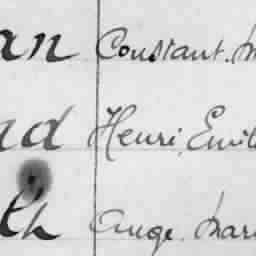 an Constant. M
nd Henri Emil
th Ange. Mari